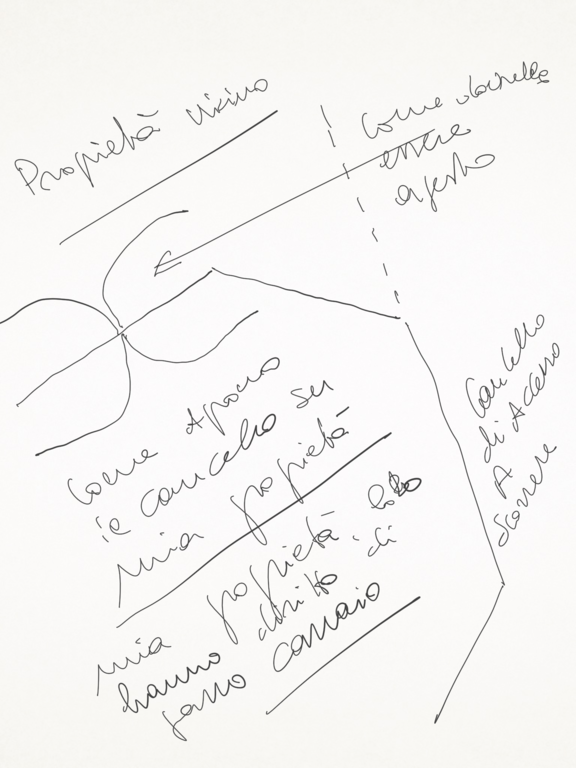 Proprietà vicino
Come dovrebbe
essere
aperto
Cancello
di Accesso
A
scorrere
Come Aprono
il cancello su
mia proprietà
mia proprietà loro
hanno diritto di
passo carraio